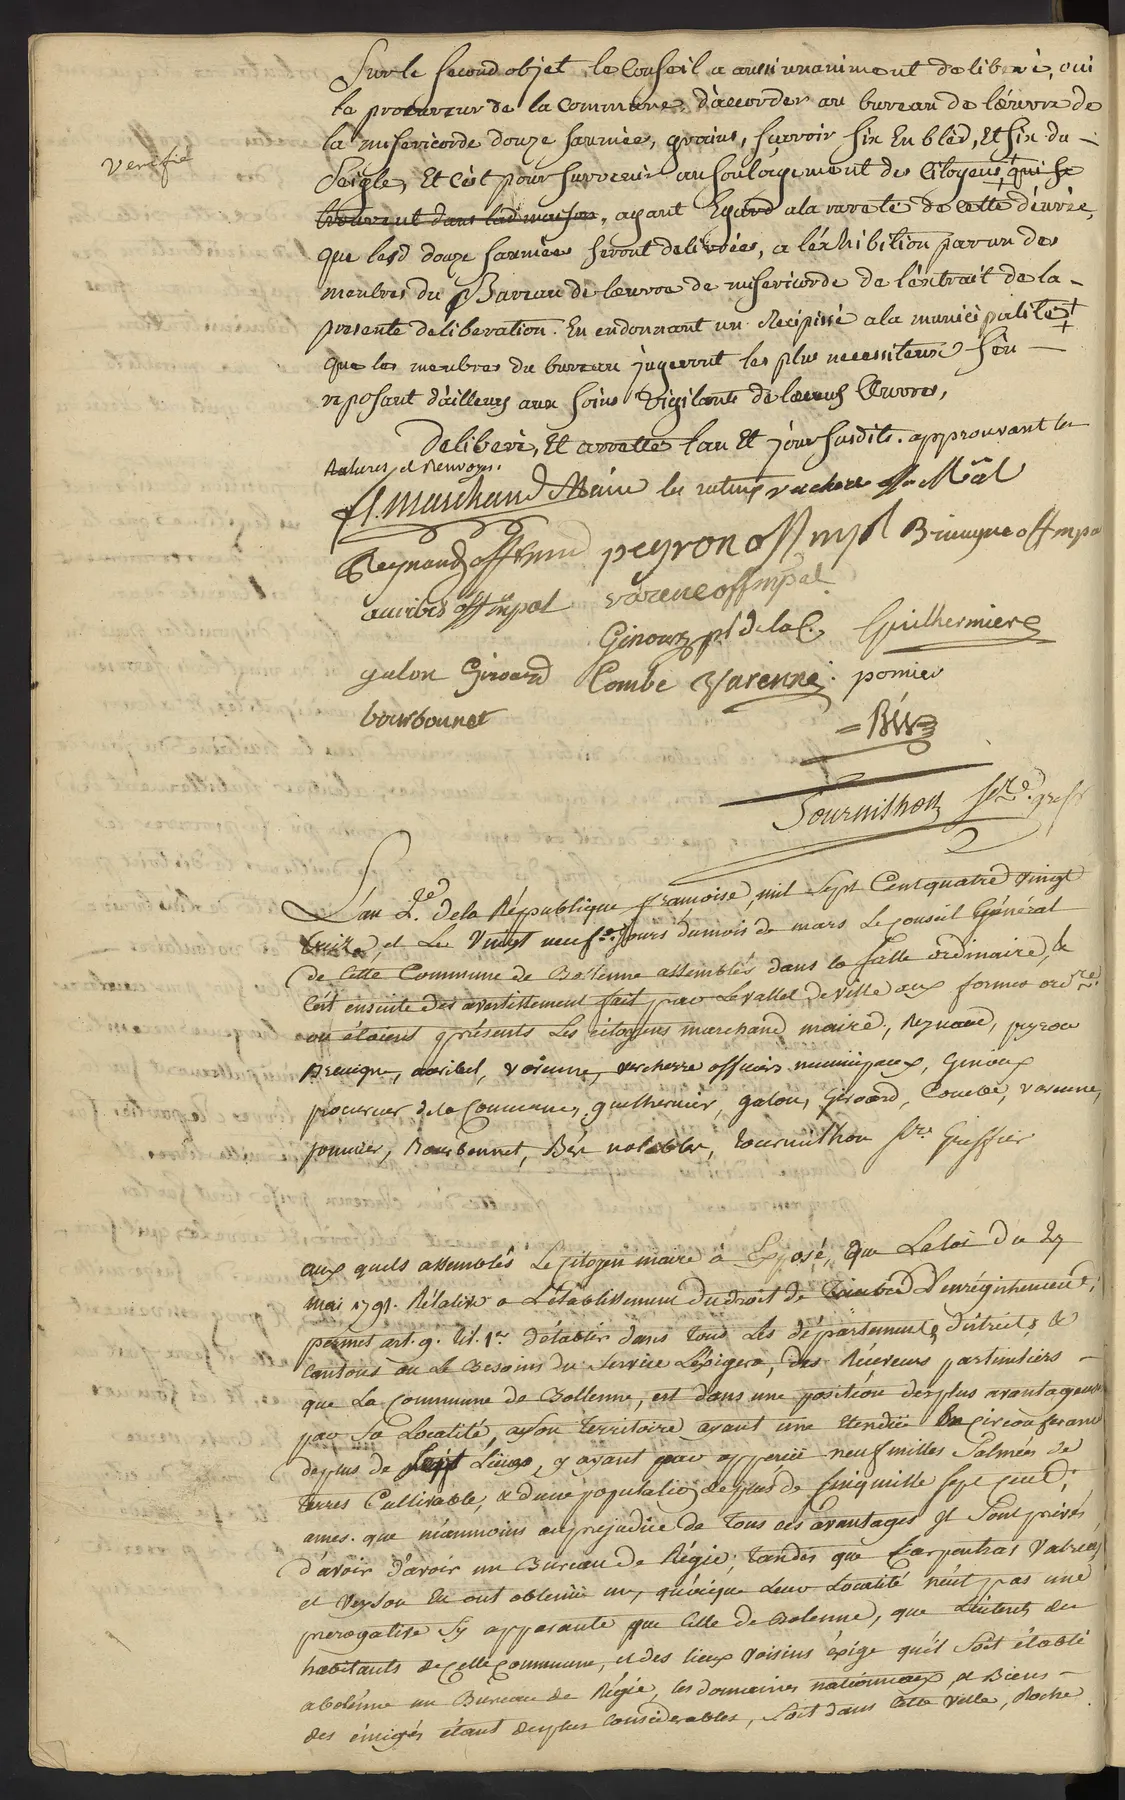 Sur le second objet, le Conseil a aussi unaniment deliberé, oui
le procureur de la Commune, d'accorder au bureau de l'œuvre de
la misericorde douze saumées, grains, sçavoir six En bléd, Et six du
vérifié
Seigle, Et c'est pour survenir au soulagement des Citoyens, qui se
trouvent dans lad maison, ayant Egard a la rareté de cette dénrée,
que lesd douze saumées seront delivrées, a l'éxhibition par un des
membres du Bureau de lœuvre de misericorde de l'éxtrait de la
presente deliberation. En en donnant un Recipissé a la municipalité
que les membres du bureau jugeront les plus necessiteux s'en
reposant d'ailleurs aux soins Vigilants de Œuvres,
Deliberé, Et arretté l'an Et jour susdits. approuvant les
Ratures et Renvoys.
Marchand Maire les ratures vachere off Mâl
Reynaud off peyron off mpl Breuigne off mpal
auribes off mpal varene off mpal
Ginoux pr de la C. Guilhermier
galon Girard Combe Varenne pomier
bourbounet
Béz
Tournilhon sre greff
L'an 2e de la République françoise, mil Sept Cent quatre vingt
treize, et Le Vingt neuf jours du mois de mars Le Conseil Général
de Cette Commune de Bollenne assemblés dans la salle ordinaire, &
C'est ensuite des avertissement fait par Le vallet de Ville aux formes ordres
ou étaient présents Les citoyens marchand maire, Reynaud, peyron
Breuigne, auribes, varenne, vacherre officiers municipaux, Ginoux
procureur de la Commune, guilhermier, galon, Girard, Combe, varenne,
pommier, Bourbonnet, Béz notables, Tournilhon sre Greffier
aux quels assemblés Le Citoyen maire a Exposé, que La loi du 27
mai 1791. Rélative a L'établissement du droit de Timbre D'enrégistrement,
permet art. 9. tit. 1er d'établir dans tous Les départements, districts &
Cantons ou Le Besoins du Service L'éxigera, des Réceveurs particuliers
que La Commune de Bollenne, est dans une position des plus avantageuse
par Sa Localité, a son territoire ayant une étendüe En circonferance
de plus de Sept Lieües, y ayant par apperçû neuf milles Salmées de
terres Cultivable, & d'une population de plus de Cinq mille Sept Cent
ames. que néanmoins au prejudice de tous ces avantages Il Sont privés
d'avoir d'avoir un Bureau de Régie; tandis que Carpentras Valréas
et Veyson En ont obtenüe un, quoique Leur Localité n'éut pas une
prerogative Sy apparante que Celle de Bolenne, que L'interêt des
habitants de Cette Commune, et des lieux Voisins éxige qu'il Soit établi
a bolénne un Bureau de Régie, les domaines nationnaux, et Biens
des émigrés étant des plus Considerables, Soit dans Cette Ville, Roche